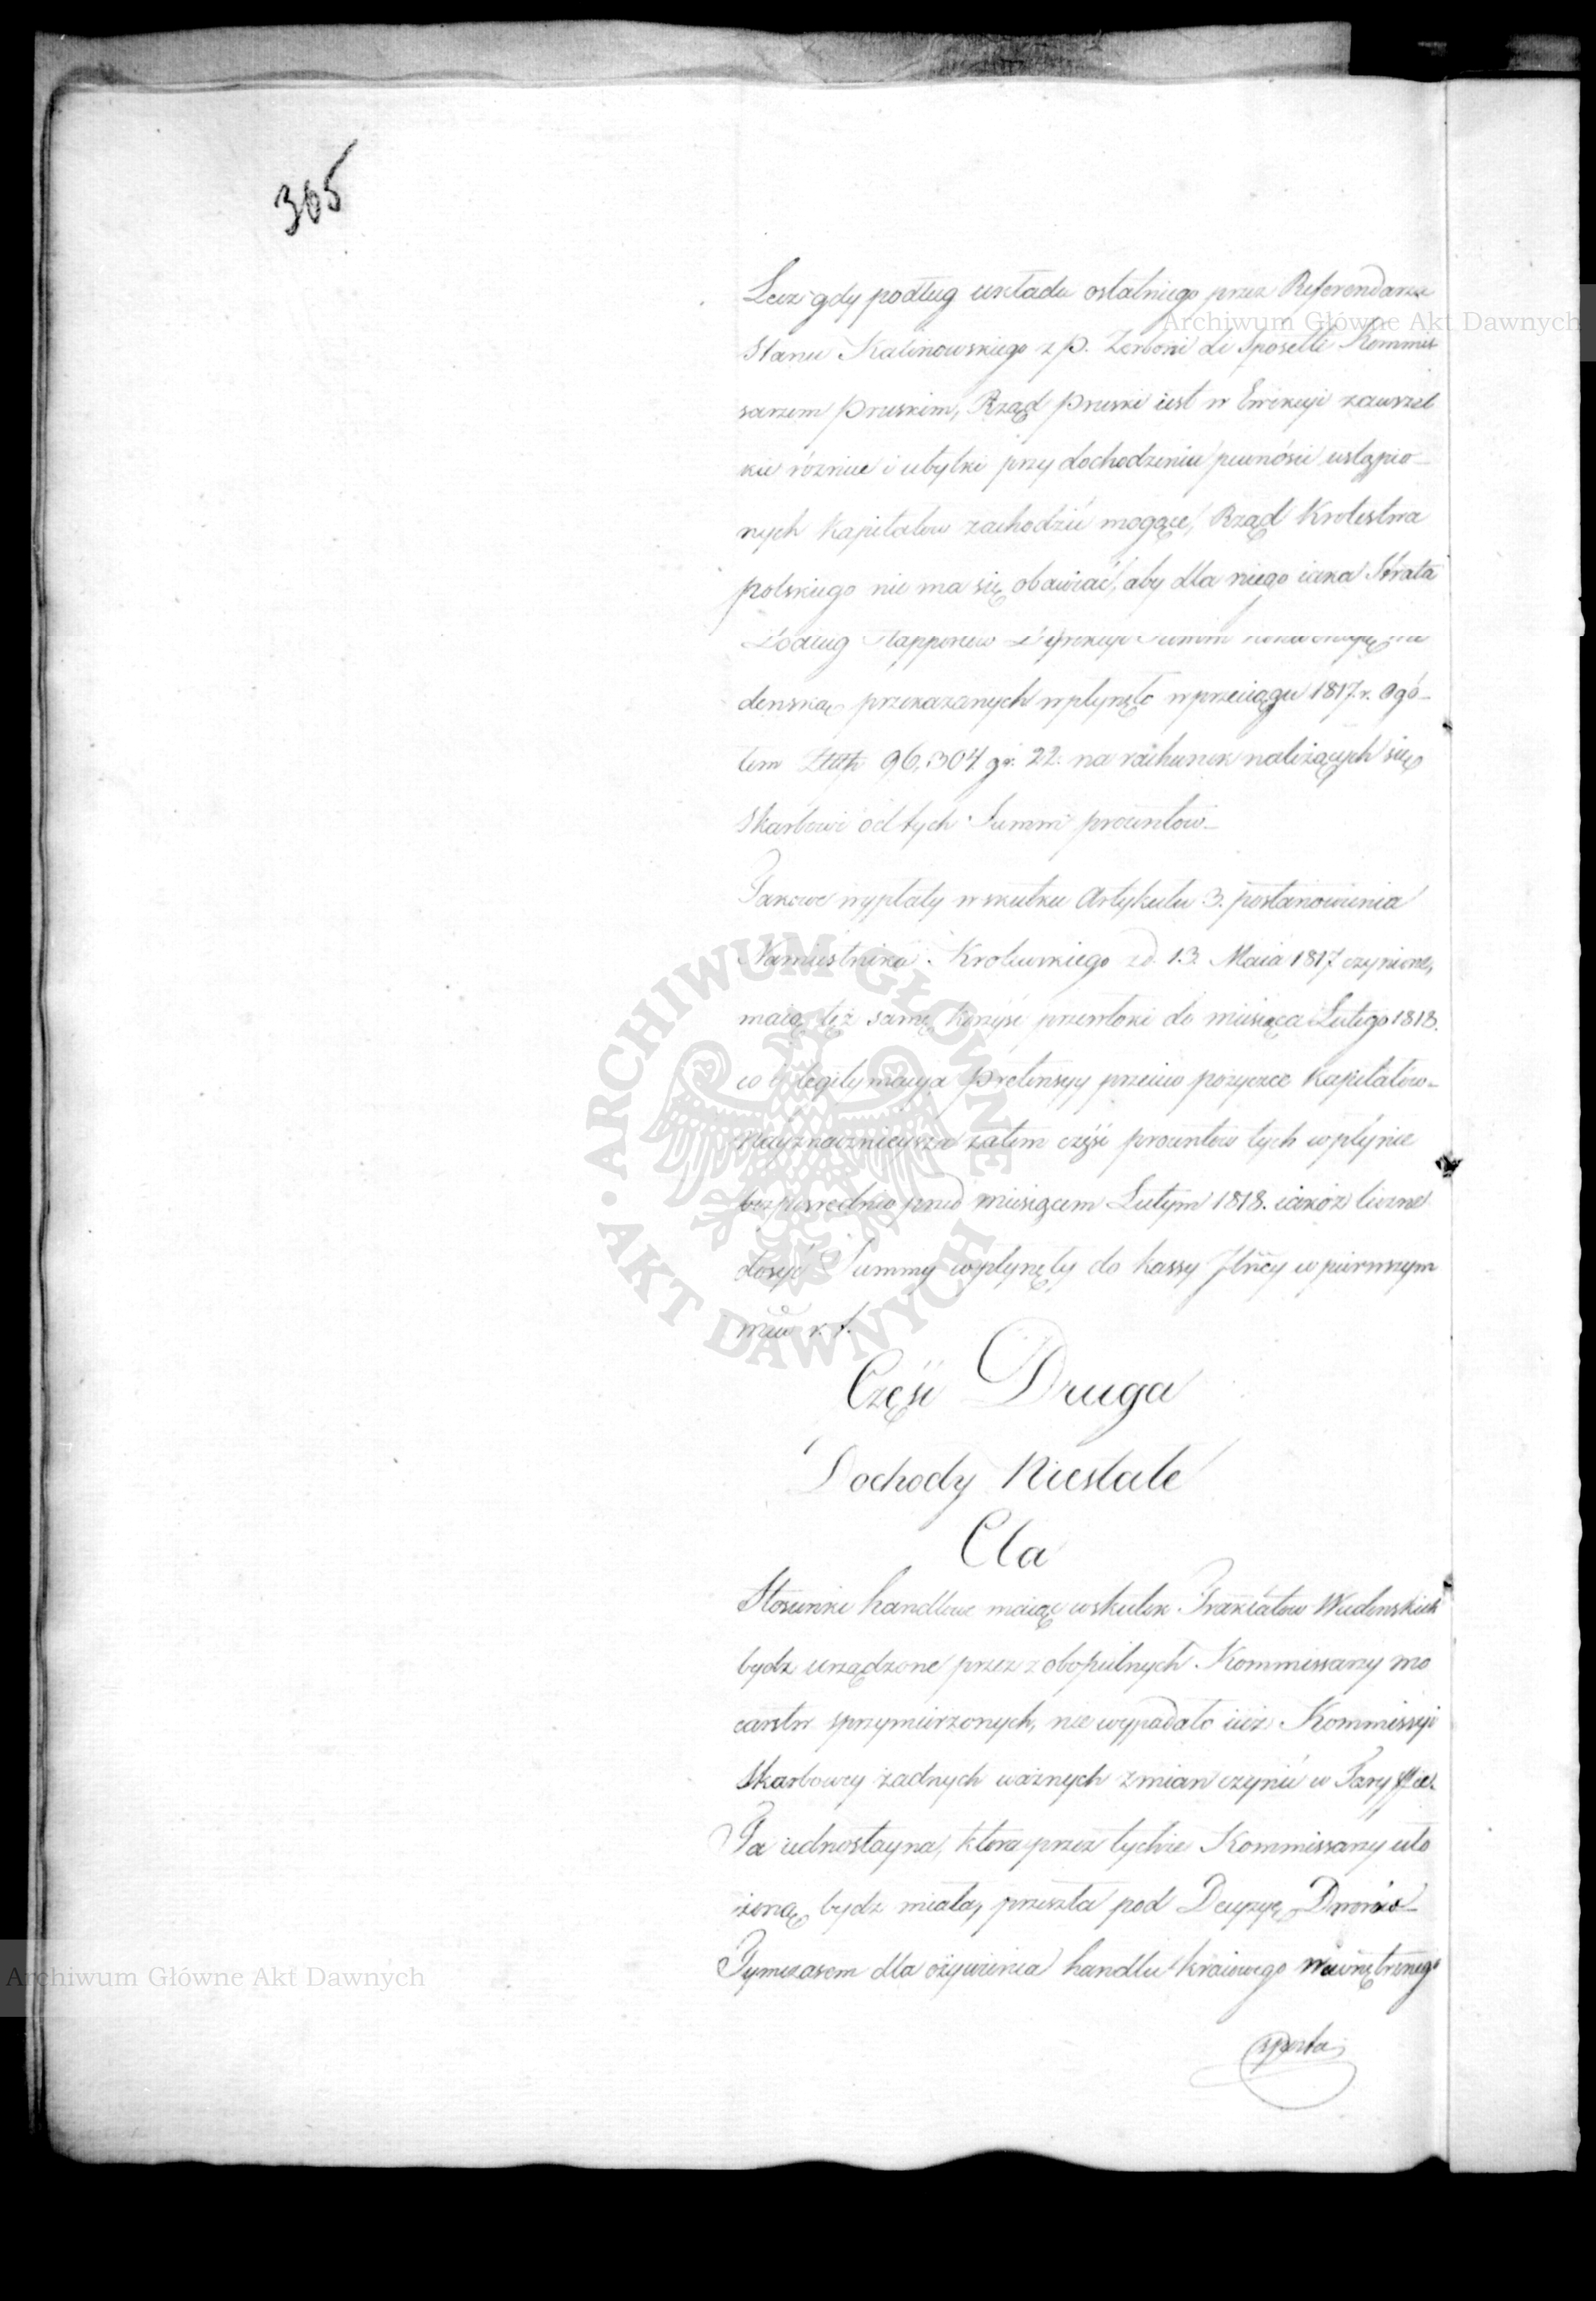 305
Lecz gdy podług układu ostatniego przez Referendarza
Stanu Kalinowskiego z p. Zerboni di Sposetti Kommis
sarzem pruskim, Rząd pruski iest w Ewikcyi zawszel
kie różnice i ubytki przy dochodzeniu pewności ustąpio-
nych kapitałow zachodzić mogące, Rząd Krolestwa
polskiego nie ma się obawiać, aby dla niego iaka Strata
Podług Rapportow Dyrekcyi Summ
denską przekazanych wpłynęło w przeciągu 1817. r. ogó-
łem Złłp 96,304 gr. 22. na rachunek należących się
Skarbowi od tych Summ procentow-
Takowe wypłaty w skutku Artykułu 3. postanowienia
Namiestnika Krolewskiego z d. 13. Maia 1817 czynione,
maią też samę korzyść przewłoki do miesiąca Lutego 1818.
co i legitymacya pretensyy przeciw pożyczce kapitałów-
Nayznacznieysza zatem część procentow tych wpłynie
bezpośrednio przed miesiącem Lutym 1818. iakoż liczne
dosyć Summy wpłynęły do kassy Jłney w pierwszym
mcu r. t.
Część Druga
Dochody Niestałe
Cła
Stosunki handlowe maiąc w skutek Traktatow Wiedenskich
bydz urządzone przez zobopólnych Kommissarzy mo
carstw sprzymierzonych, nie wypadało iuż Kommissyi
Skarbowey żadnych ważnych zmian czynić w Taryffie.
Ta iednostayna, ktora przez tychże Kommissarzy uło
żoną bydz miała, przeszła pod Decyzyę Dworów-
Tymczasem dla ożywienia handlu kraiowego wewnętrznego
Archiwum Główne Akt Dawnych
ARCHIWUM GŁÓWNE AKT DAWNYCH
Archiwum Główne Akt Dawnych